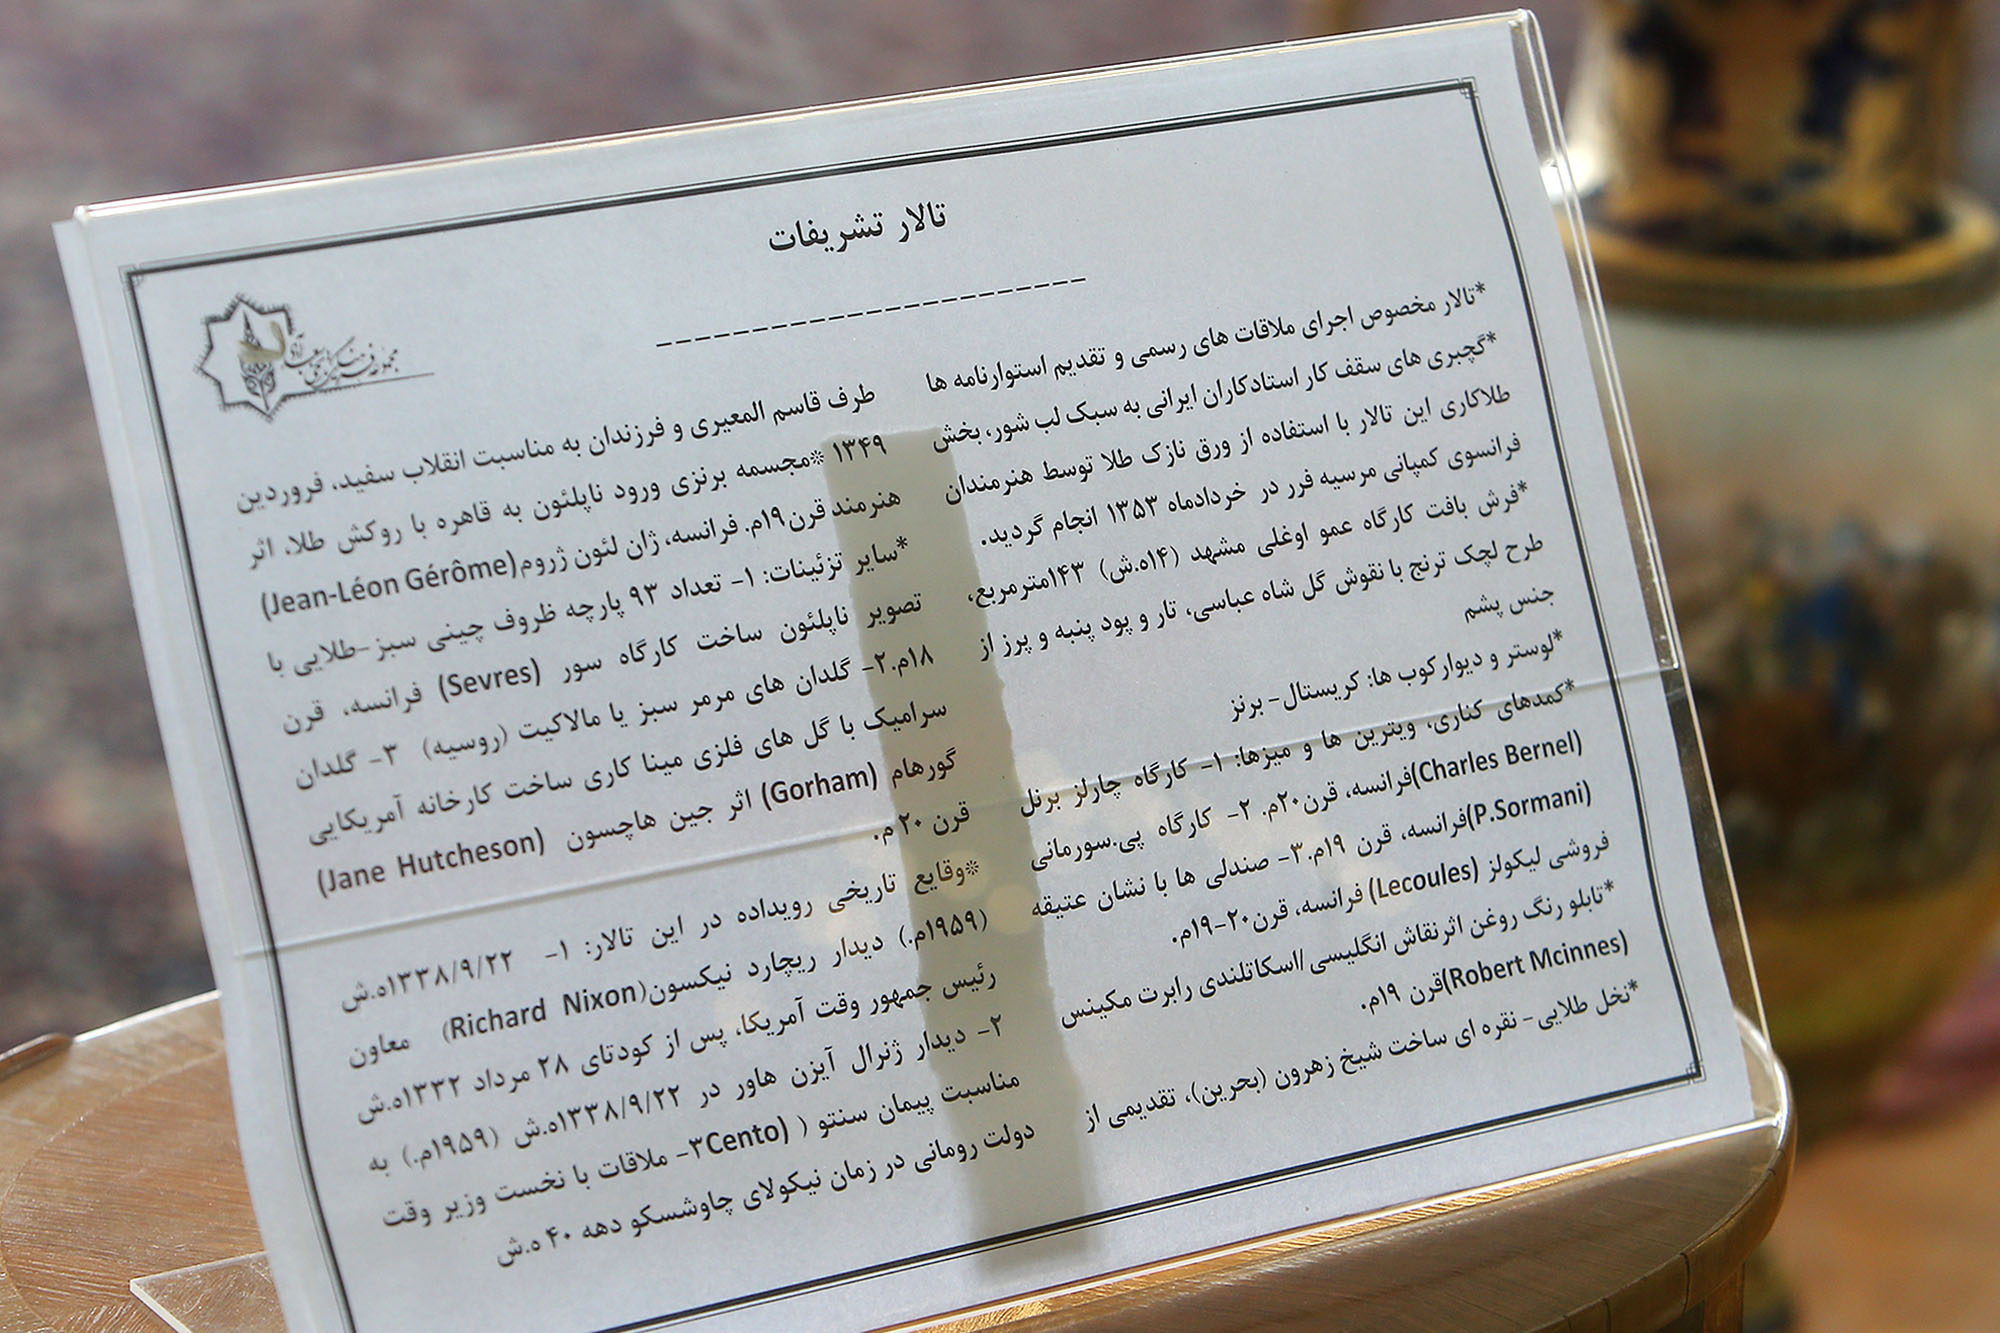 تالار تشریفات
--------------------
مجموعه فرهنگی تاریخی سعدآباد
*تالار مخصوص اجرای ملاقات های رسمی و تقدیم استوارنامه ها
*گچبری های سقف کار استادکاران ایرانی به سبک لب شور، بخش
طلاکاری این تالار با استفاده از ورق نازک طلا توسط هنرمندان
فرانسوی کمپانی مرسیه فرر در خردادماه ۱۳۵۳ انجام گردید.
*فرش بافت کارگاه عمو اوغلی مشهد (۱۴ه.ش) ۱۴۳مترمربع،
طرح لچک ترنج با نقوش گل شاه عباسی، تار و پود پنبه و پرز از
جنس پشم
*لوستر و دیوارکوب ها: کریستال- برنز
*کمدهای کناری، ویترین ها و میزها: ۱- کارگاه چارلز برنل
(Charles Bernel)فرانسه، قرن۲۰م. ۲- کارگاه پی.سورمانی
(P.Sormani)فرانسه، قرن ۱۹م.۳- صندلی ها با نشان عتیقه
فروشی لیکولز (Lecoules) فرانسه، قرن۲۰-۱۹م.
*تابلو رنگ روغن اثرنقاش انگلیسی/اسکاتلندی رابرت مکینس
(Robert Mcinnes)قرن ۱۹م.
*نخل طلایی- نقره ای ساخت شیخ زهرون (بحرین)، تقدیمی از
طرف قاسم المعیری و فرزندان به مناسبت انقلاب سفید، فروردین
۱۳۴۹ *مجسمه برنزی ورود ناپلئون به قاهره با روکش طلا، اثر
هنرمند قرن۱۹م. فرانسه، ژان لئون ژروم(Jean-Léon Gérôme)
*سایر تزئینات: ۱- تعداد ۹۳ پارچه ظروف چینی سبز-طلایی با
تصویر ناپلئون ساخت کارگاه سور (Sevres) فرانسه، قرن
۱۸م.۲- گلدان های مرمر سبز یا مالاکیت (روسیه) ۳- گلدان
سرامیک با گل های فلزی مینا کاری ساخت کارخانه آمریکایی
گورهام (Gorham) اثر جین هاچسون (Jane Hutcheson)
قرن ۲۰ م.
*وقایع تاریخی رویداده در این تالار: ۱- ۱۳۳۸/۹/۲۲ه.ش
(۱۹۵۹م.) دیدار ریچارد نیکسون(Richard Nixon) معاون
رئیس جمهور وقت آمریکا، پس از کودتای ۲۸ مرداد ۱۳۳۲ه.ش
۲- دیدار ژنرال آیزن هاور در ۱۳۳۸/۹/۲۲ه.ش (۱۹۵۹م.) به
مناسبت پیمان سنتو ( (Cento۳- ملاقات با نخست وزیر وقت
دولت رومانی در زمان نیکولای چاوشسکو دهه ۴۰ ه.ش